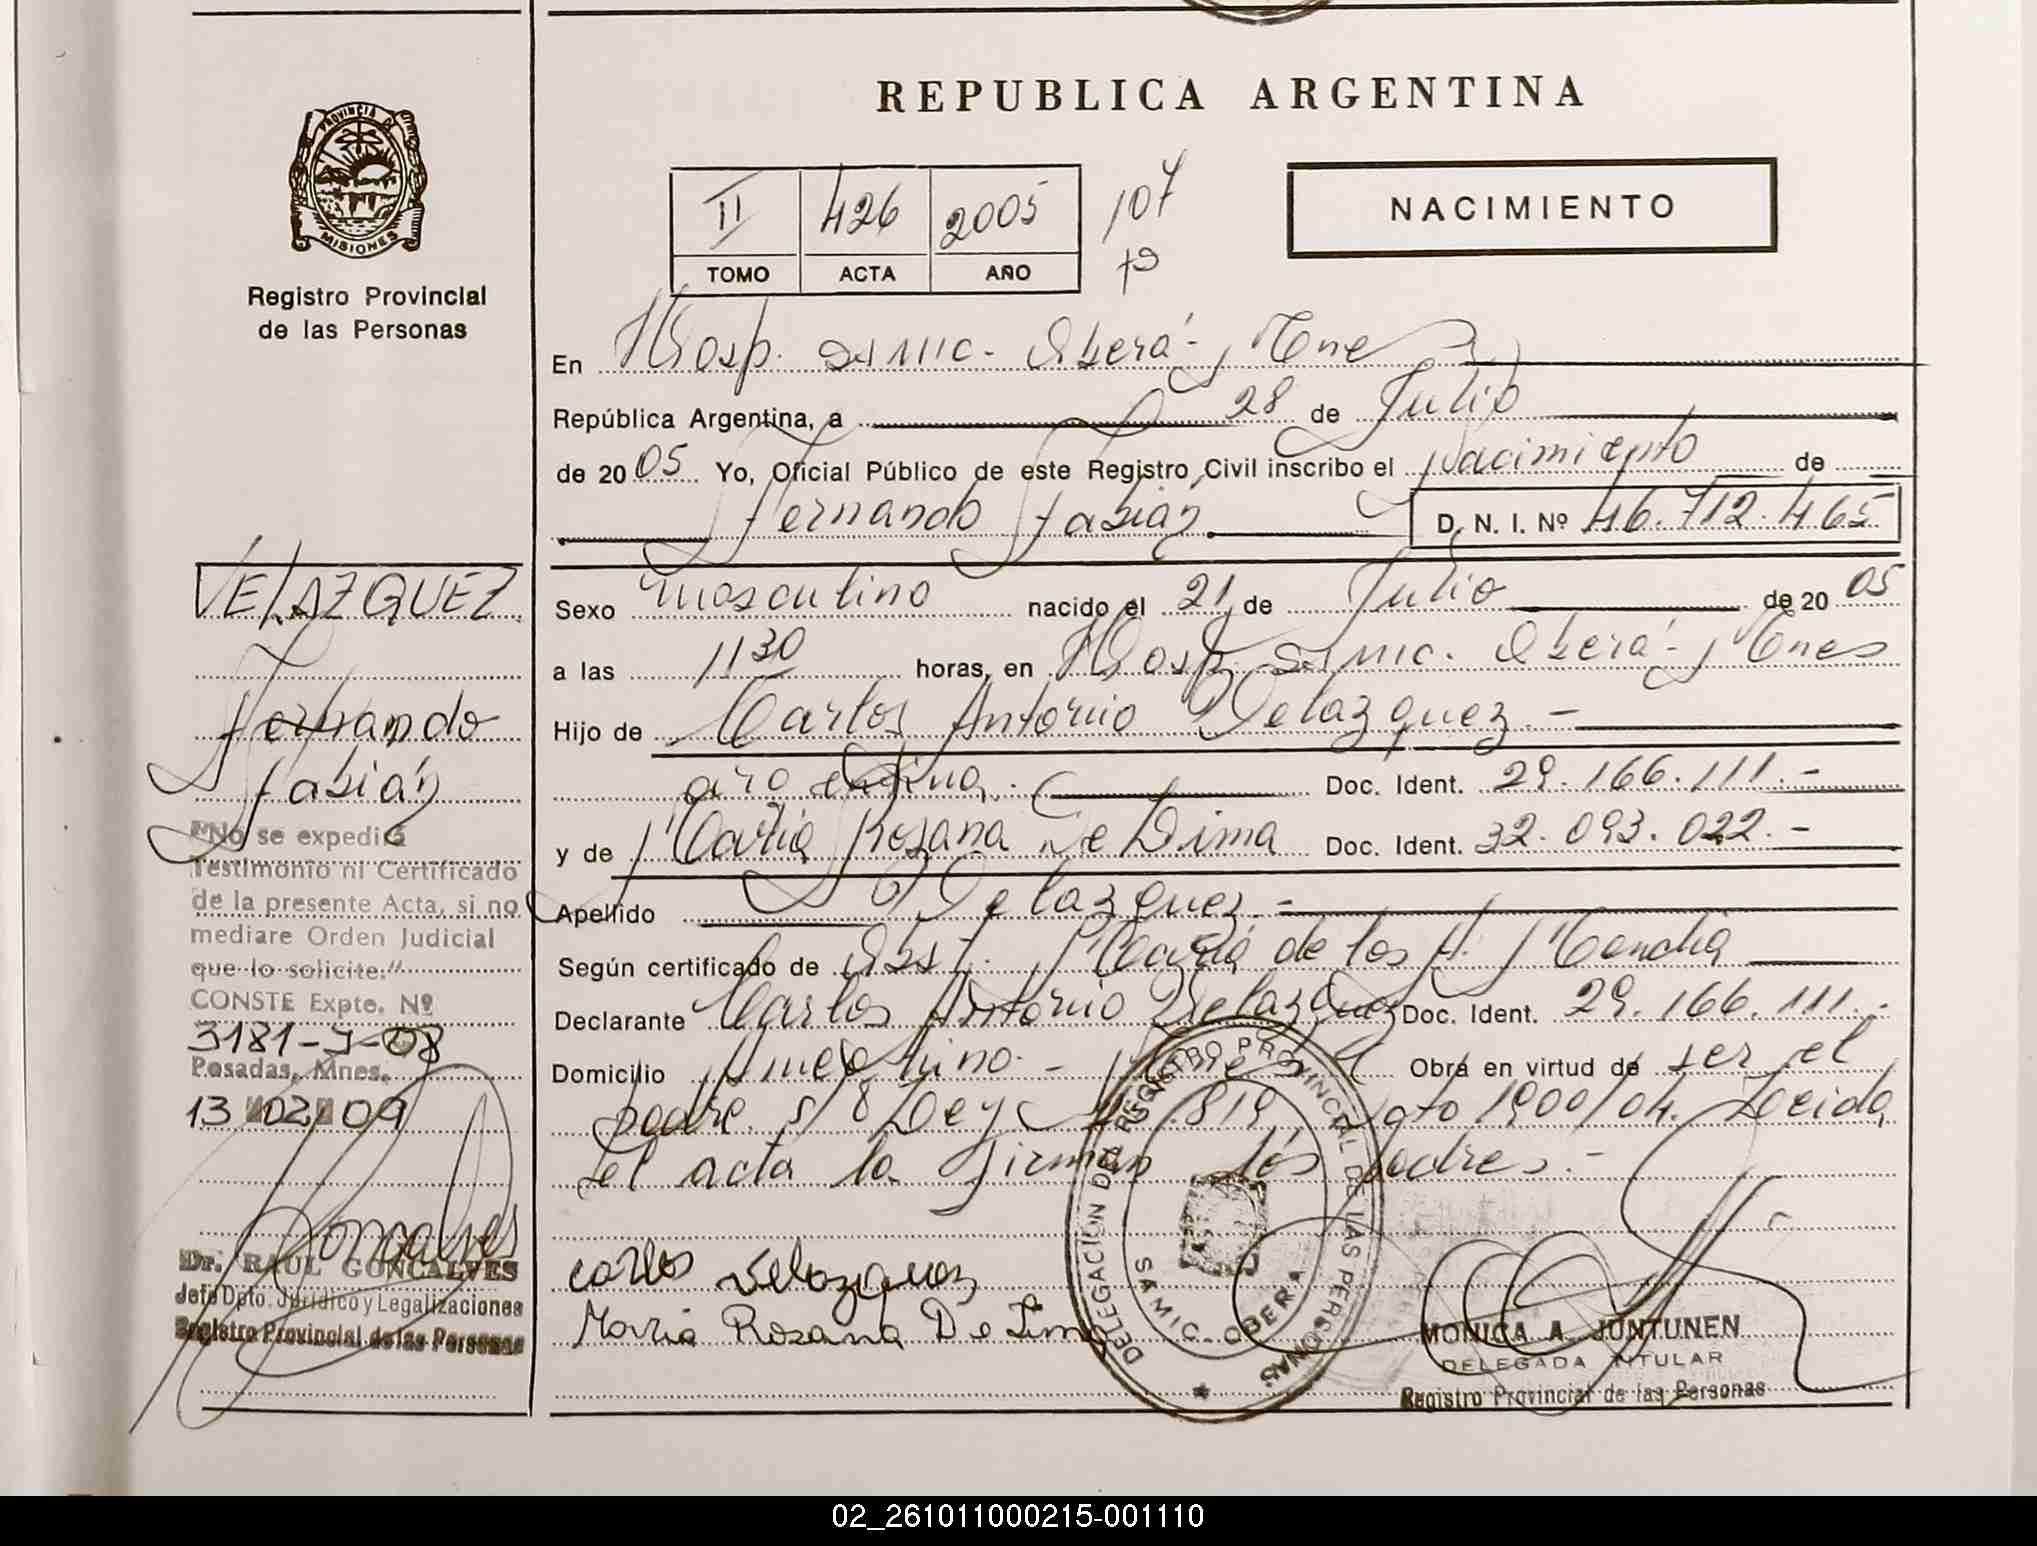 REPUBLICA ARGENTINA
PROVINCIA DE
MISIONES
Registro Provincial
de las Personas
II 426 2005 107
TOMO ACTA AÑO
NACIMIENTO
En Hosp. SAMIC. Oberá - Mnes
República Argentina, a 28 de Julio
de 2005 Yo, Oficial Público de este Registro Civil inscribo el Nacimiento de
Fernando Fabián D. N. I. Nº 46.712.465
Sexo masculino nacido el 21 de Julio de 2005
a las 11 30 horas, en Hosp. SAMIC. Oberá - Mnes
Hijo de Carlos Antonio Velazquez. -
argentina. Doc. Ident. 29.166.111. -
y de Maria Rozana De Lima Doc. Ident. 32.093.022. -
Apellido Velazquez. -
Según certificado de Obst. María de los A. Mencha
Declarante Carlos Antonio Velazquez Doc. Ident. 29.166.111. -
Domicilio Ameghino - Mnes Obra en virtud de ser el
padre. s/ 8 Ley 819 Dto 1900/04. Leida
el acta la firman los padres. -
carlos velazquez
Maria Rozana De Lima
DELEGACIÓN DEL REGISTRO PROVINCIAL DE LAS PERSONAS
SAMIC - OBERA
MONICA A. JUNTUNEN
DELEGADA TITULAR
Registro Provincial de las Personas
VELAZQUEZ
Fernando
Fabián
"No se expedirá
Testimonio ni Certificado
de la presente Acta, si no
mediare Orden Judicial
que lo solicite."
CONSTE Expte. Nº
3181-J-08
Posadas, Mnes.
13 02 09
Goncalves
Dr. RAUL GONCALVES
Jefe Dpto. Jurídico y Legalizaciones
Registro Provincial de las Personas
02_261011000215-001110